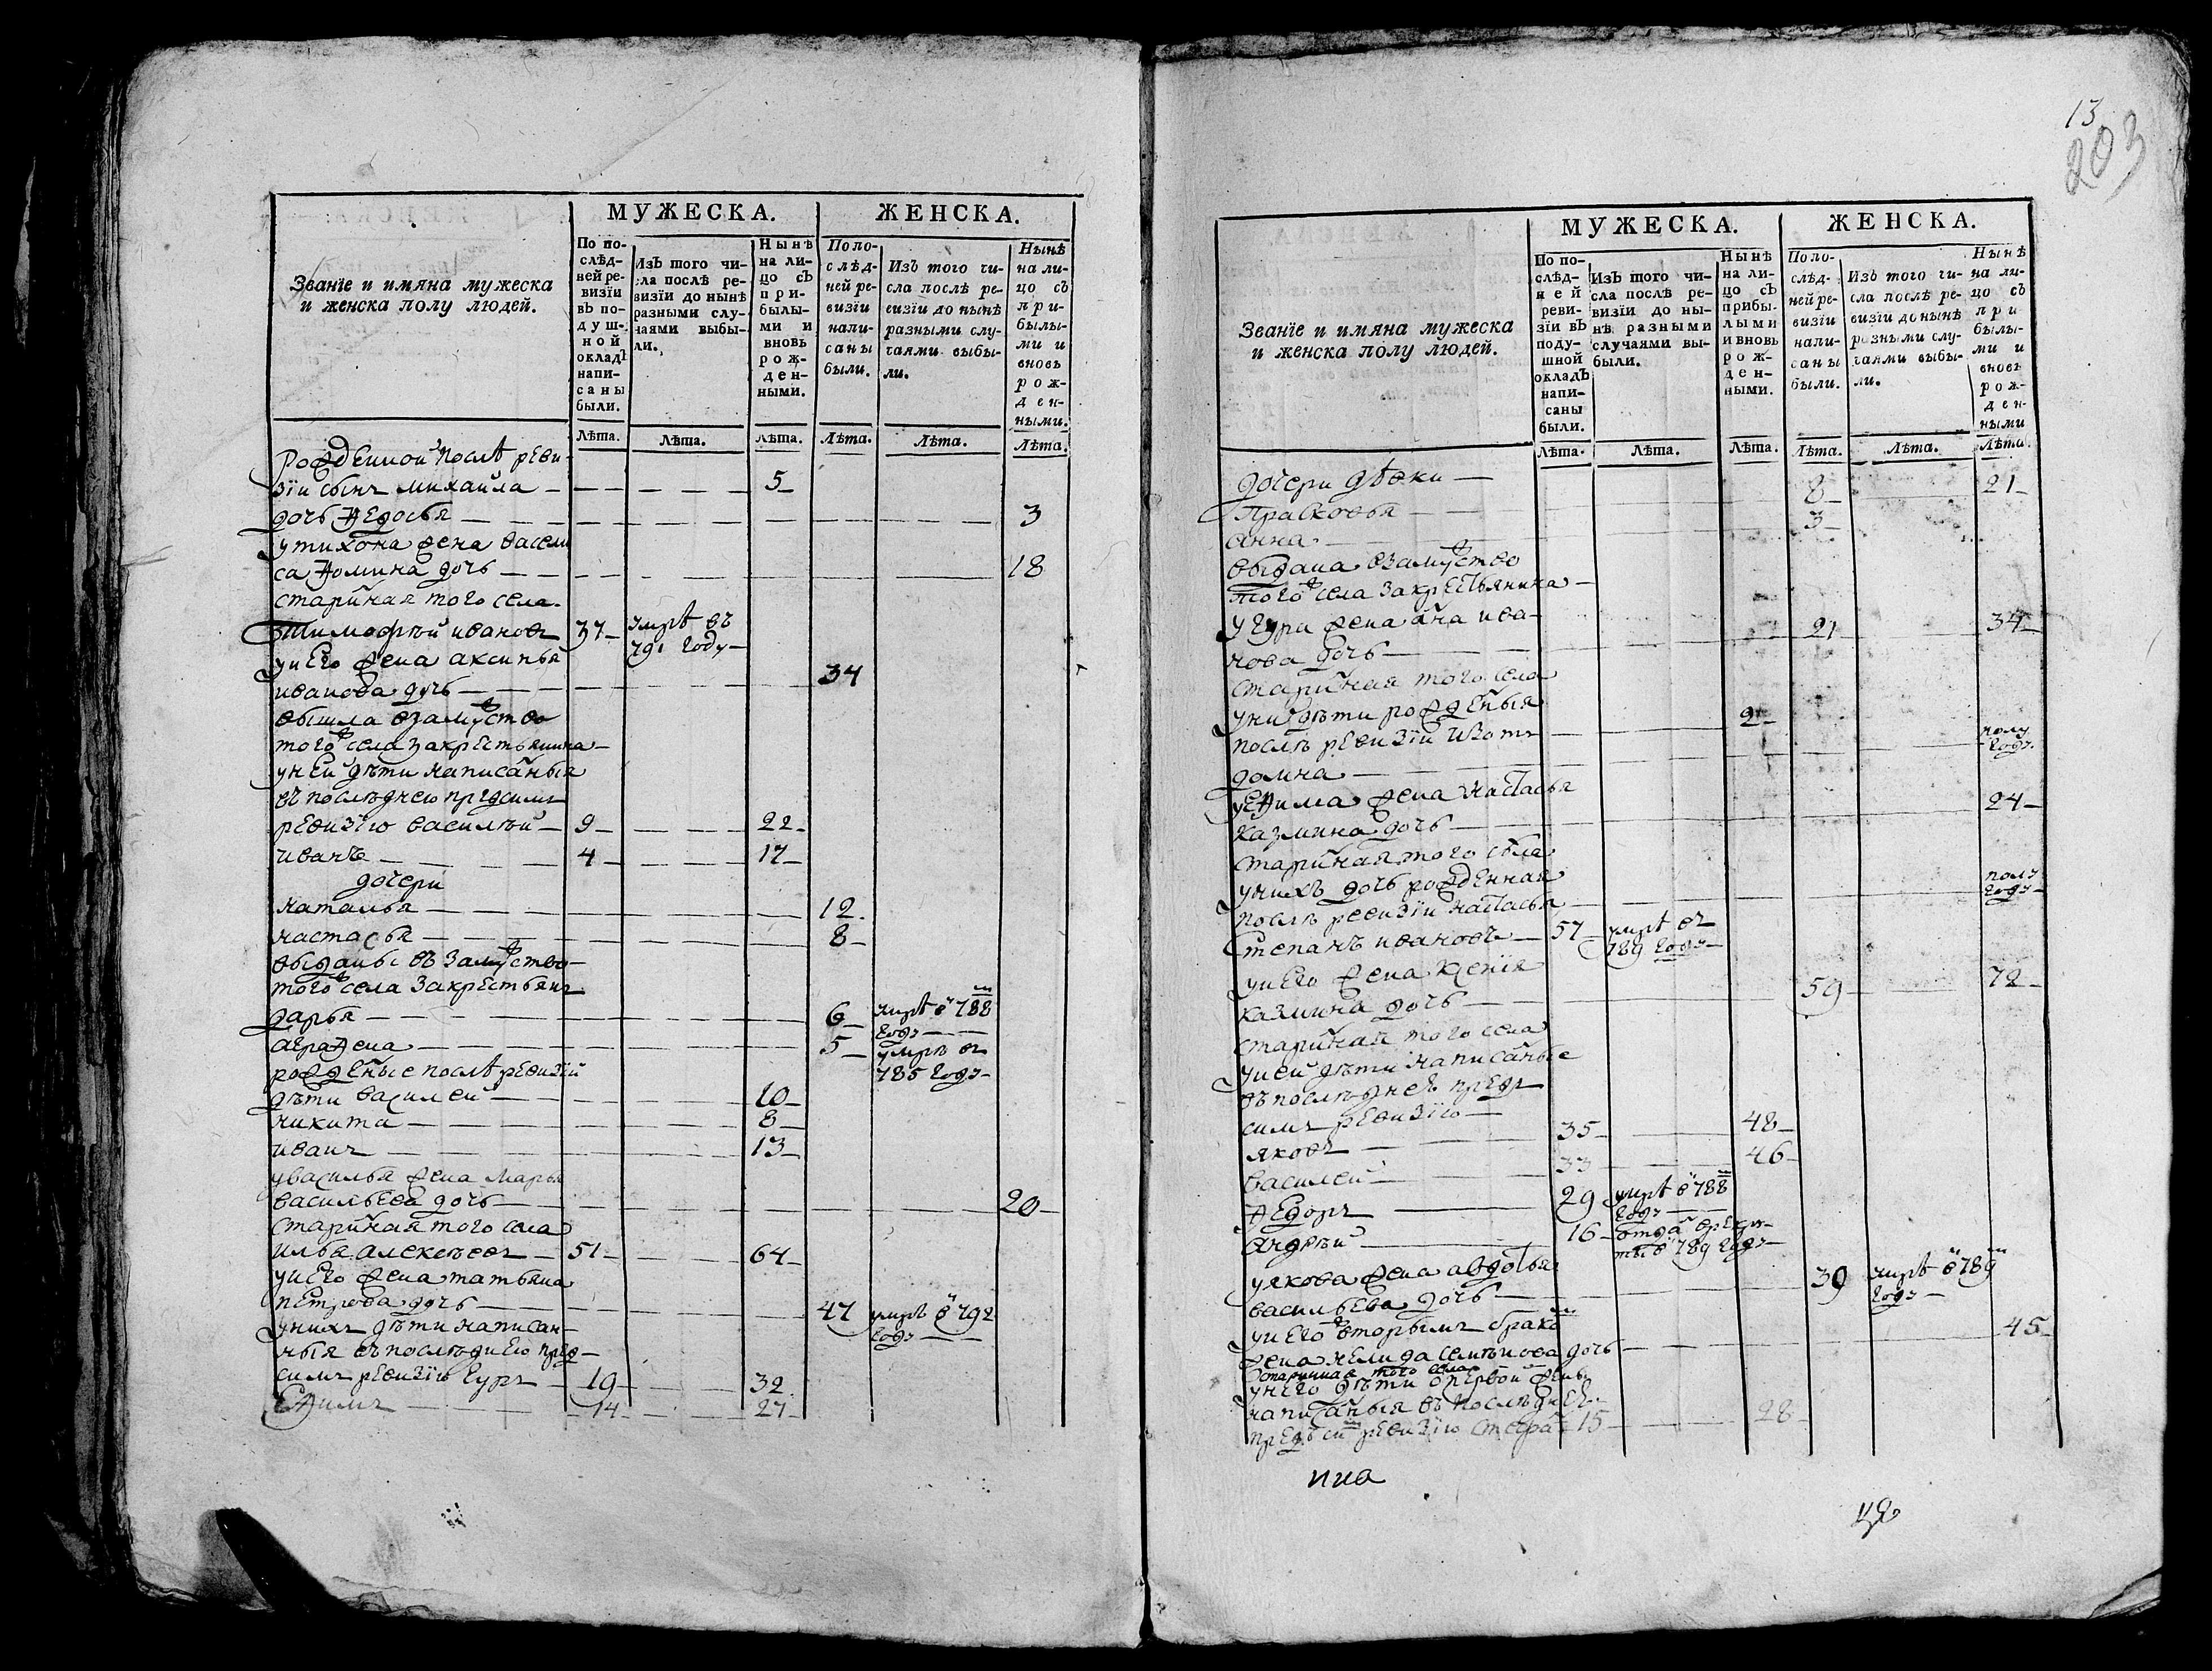 МУЖЕСКА. ЖЕНСКА.
Званїе и имяна мужеска и женска полу людей.
По послѣдней ревизїи въ подушной окладъ написаны были.
Изъ того числа послѣ ревизїи до нынѣ разными случаями выбыли.
Нынѣ на лицо съ прибылыми и вновь рожденными.
По послѣдней ревизїи написаны были.
Изъ того числа послѣ ревизїи до нынѣ разными случаями выбыли.
Нынѣ на лицо съ прибылыми и вновь рожденными.
Лѣта. Лѣта. Лѣта. Лѣта. Лѣта. Лѣта.
рожденной послѣ реви
зїи сынъ михаила 5
дочь Федосья 3
у тихона жена васели
са Фомина дочь 18
старинная того села
Тимофѣй ивановъ 37 умрѣ въ
791 году
у него жена аксинья
иванова дочь 34
вышла взамуство
того ж села за крестьянина
у ней дѣти написаныя
въ последнею пред симъ
ревизїю василѣй 9 22
иванъ 4 17
дочери
наталья 12
настасья 8
выданы въ замуство
того ж села за крестьянъ
дарья 6 умрѣ в 788
году
аграфена 5 умрѣ въ
785 году
рожденые послѣ ревизїи
дѣти василей 10
никита 8
иванъ 13
у василья жена марья
васильева дочь 20
старинная того села
илья алексѣевъ 51 64
у него жена татьяна
петрова дочь 47 умрѣ в 792
году
у нихъ дѣти написан
ныя въ послѣднею пред
симъ ревизїю гуръ 19 32
Ефимъ 14 27
13
203
МУЖЕСКА. ЖЕНСКА.
Званїе и имяна мужеска и женска полу людей.
По послѣдней ревизїи въ подушной окладъ написаны были.
Изъ того числа послѣ ревизїи до нынѣ разными случаями выбыли.
Нынѣ на лицо съ прибылыми и вновь рожденными.
По послѣдней ревизїи написаны были.
Изъ того числа послѣ ревизїи до нынѣ разными случаями выбыли.
Нынѣ на лицо съ прибылыми и вновь рожденными
Лѣта. Лѣта. Лѣта. Лѣта. Лѣта. Лѣта.
дочери дѣвки
Прасковья 8 21
анна 3
выдана взамуство
того ж села за крестьянина
у гура жена ана ива
нова дочь 21 34
старинная того села
у них дѣти рожденыя
послѣ ревизїи изотъ 2
домна полу
году
у Ефима жена настасья
казмина дочь 24
старинная того села
у нихъ дочь рожденная
послѣ ревизїи настасья полу
году
степанъ ивановъ 57 умрѣ въ
789 году
у него жена
казмина дочь 59 72
старинная того села
у ней дѣти написаные
въ послѣднею пред
симъ ревизїю
яковъ 35 48
василей 33 46
Федоръ 29 умрѣ в 788
году
андрѣй 16 отдан в рекру
ты в 789 году
у якова жена авдотья
васильева дочь 39 умрѣ в 789
году
у него ж вторымъ браком
жена семенова дочь 45
старинная того села
у него дѣти с первой жены
написаныя въ послѣднею
пред сим ревизїю стефан 15 28